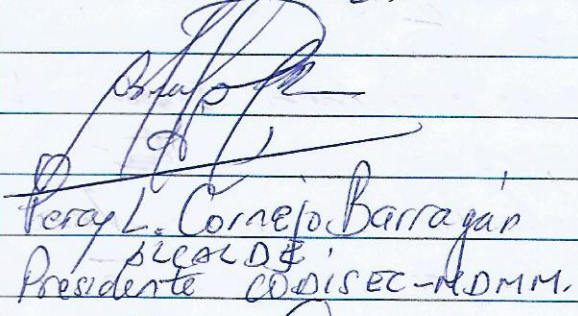 Percy L. Cornejo Barragán
ALCALDE.
Presidente CODISEC-MDMM.